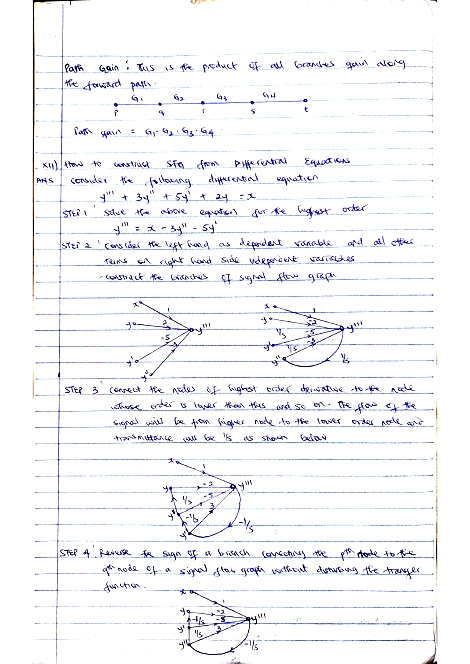 Path Gain : This is the product of all branches gain along
the forward path.
G1 G2 G3 G4
p q r s t
Path gain = G1 · G2 · G3 · G4
xii) How to construct SFG from Differential Equations
Ans Consider the following differential equation
y''' + 3y'' + 5y' + 2y = x
STEP 1 : Solve the above equation for the highest order
y''' = x - 3y'' - 5y'
STEP 2 : Consider the left hand as dependent variable and all other
terms on right hand side independent variables
- construct the branches of signal flow graph
x 1 x 1
y 2 y''' y -2 y'''
-5 1/s -5
y' y' 1/s -3
y'' y'' 1/s
STEP 3 : Connect the nodes of highest order derivative to the node
whose order is lower than this and so on. The flow of the
signal will be from higher node to the lower order node and
transmittance will be 1/s as shown below
x 1
y -2 y'''
1/s -5
y' -1/s 3
y' -1/s
STEP 4 : Reverse the sign of a branch connecting the pth node to the
qth node of a signal flow graph without disturbing the transfer
function.
x 1
y -2 y'''
-1/s -5
y' 1/s 3
y'' -1/s